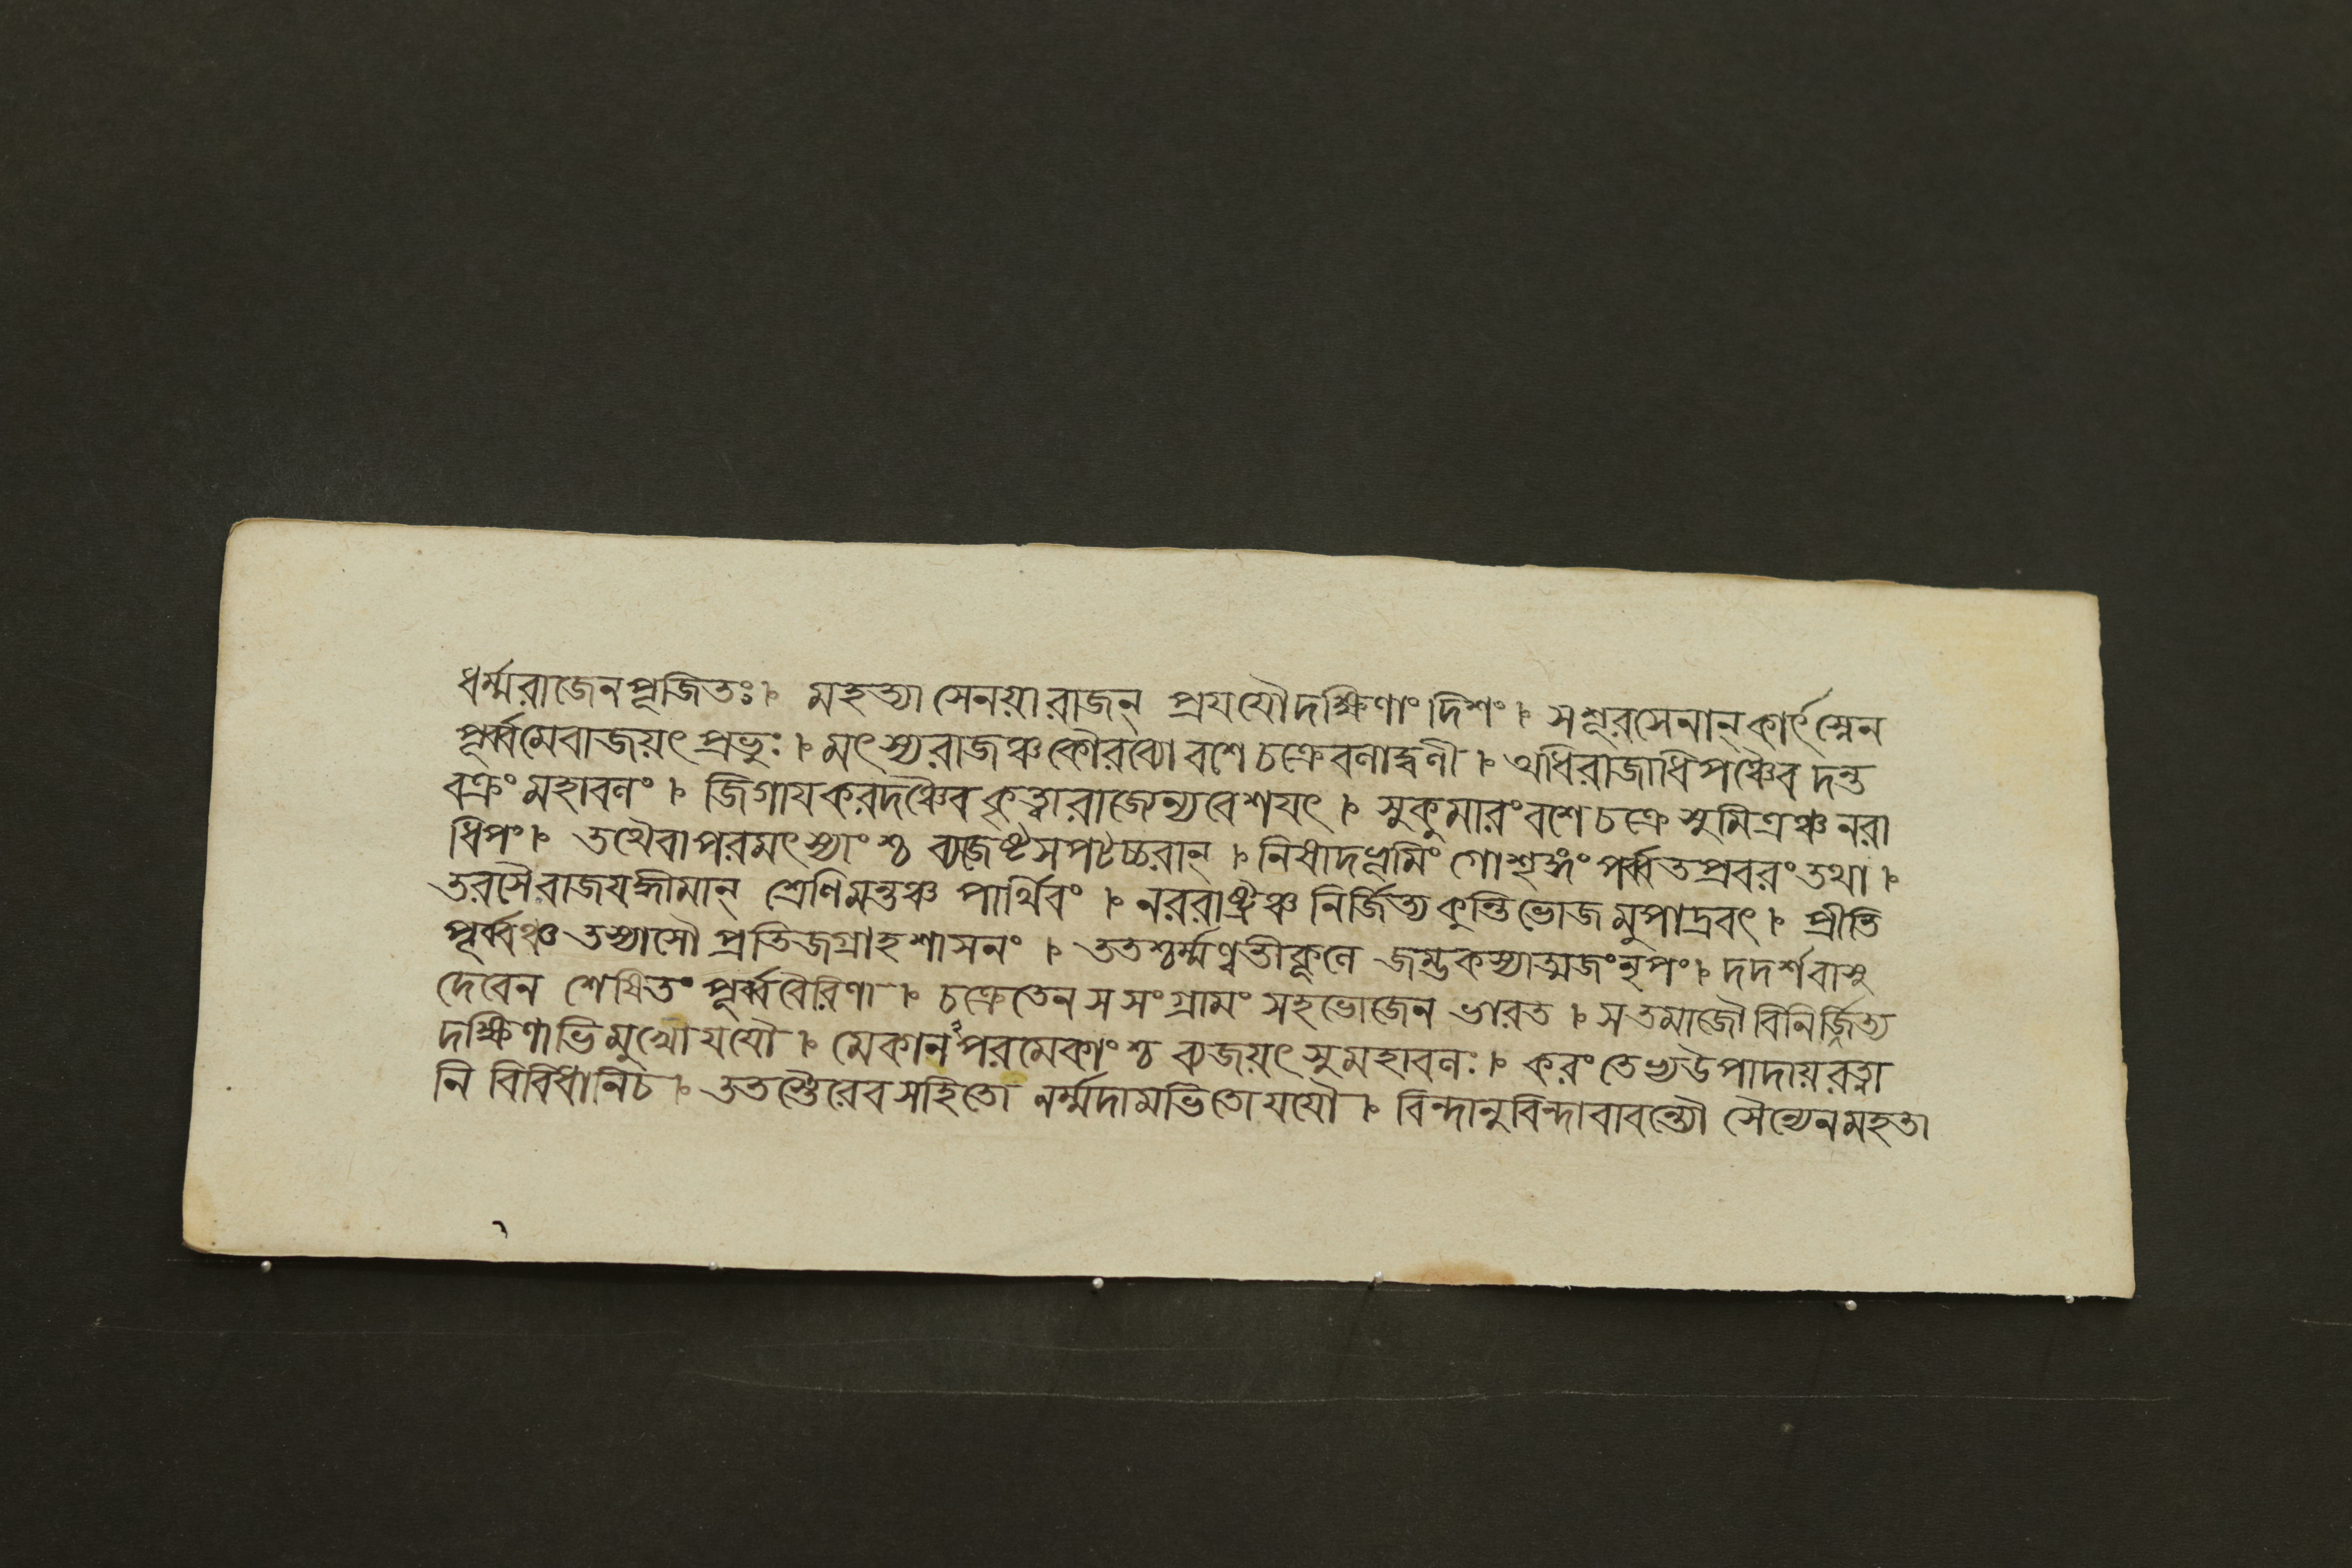 ধর্ম্মরাজেনপূজিতঃ। মহত্যা সেনয়া রাজন্ প্রযযৌদক্ষিণাং দিশং। সশূরসেনান্ কার্ৎস্নেন
পূর্ব্বমেবাজয়ৎ প্রভুঃ। মৎস্যরাজঞ্চকৌরব্যো বশে চক্রেবলাদ্বলী। অধিরাজাধিপঞ্চৈব দন্ত
বক্রং মহাবলং। জিগায করদঞ্চৈব কৃত্বা রাজ্যেন্যবেশযৎ। সুকুমারং বশে চক্রে সুমিত্রঞ্চ নরা
ধিপং। তথৈবাপরমৎস্যাংশ্চ ব্যজেষ্টসপটচ্চরান্। নিষাদভূমিং গোশৃঙ্গং পর্ব্বতপ্রবরং তথা।
তরসৈবাজযদ্ধীমান্ শ্রেণিমন্তঞ্চ পার্থিবং। নররাষ্ট্রঞ্চ নির্জিত্য কুন্তিভোজ মুপাদ্রবৎ। প্রীতি
পূর্ব্বঞ্চ তস্যাসৌ প্রতিজগ্রাহ শাসনং। ততশ্চর্ম্মণ্বতীকূলে জম্ভকস্যাত্মজং নৃপং। দদর্শ বাসু
দেবেন শেষিতং পূর্ব্ববৈরিণা। চক্রেতেন স সংগ্রামং সহ ভোজেন ভারত। স তমাজৌ বিনির্জিত্য
দক্ষিণাভিমুখো যযৌ। মেকানপরমেকাংশ্চ ব্যজয়ৎ সুমহাবলঃ। করং তেভ্যউপাদায় রত্না
নি বিবিধানিচ। ততস্তৈরেব সহিতো নর্ম্মদামভিতো যযৌ। বিন্দানুবিন্দাবাবন্ত্যৌ সৈন্যেনমহতা